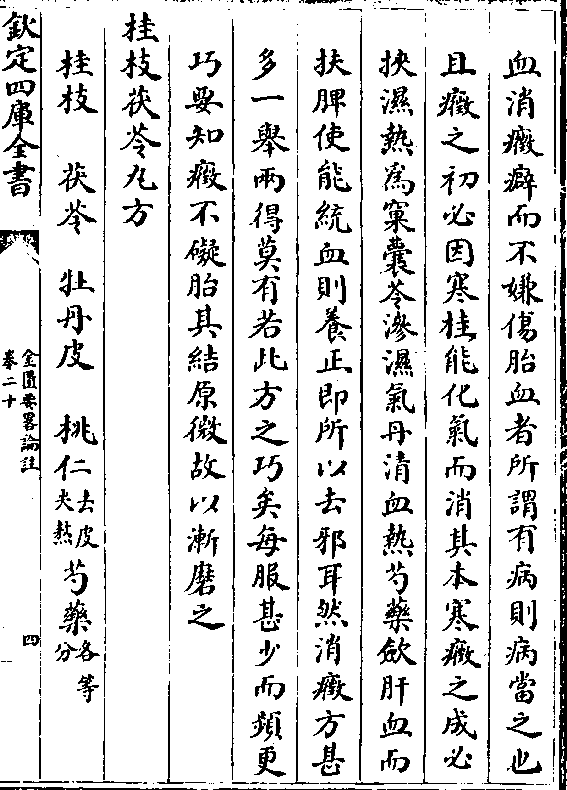 血消癥癖而不嫌傷胎血者所謂有病則病當之也
且癥之初必因寒桂能化氣而消其本寒癥之成必
挾濕熱為窠囊苓滲濕氣丹清血熱芍藥斂肝血而
扶脾使能統血則養正即所以去邪耳然消癥方甚
多一舉兩得莫有若此方之巧矣每服甚少而頻更
巧要知癥不礙胎其結原微故以漸磨之
桂枝茯苓丸方
桂枝　茯苓　牡丹皮　桃仁去皮尖熬　芍藥各等分
欽定四庫全書
金匱要畧論註
卷二十
四